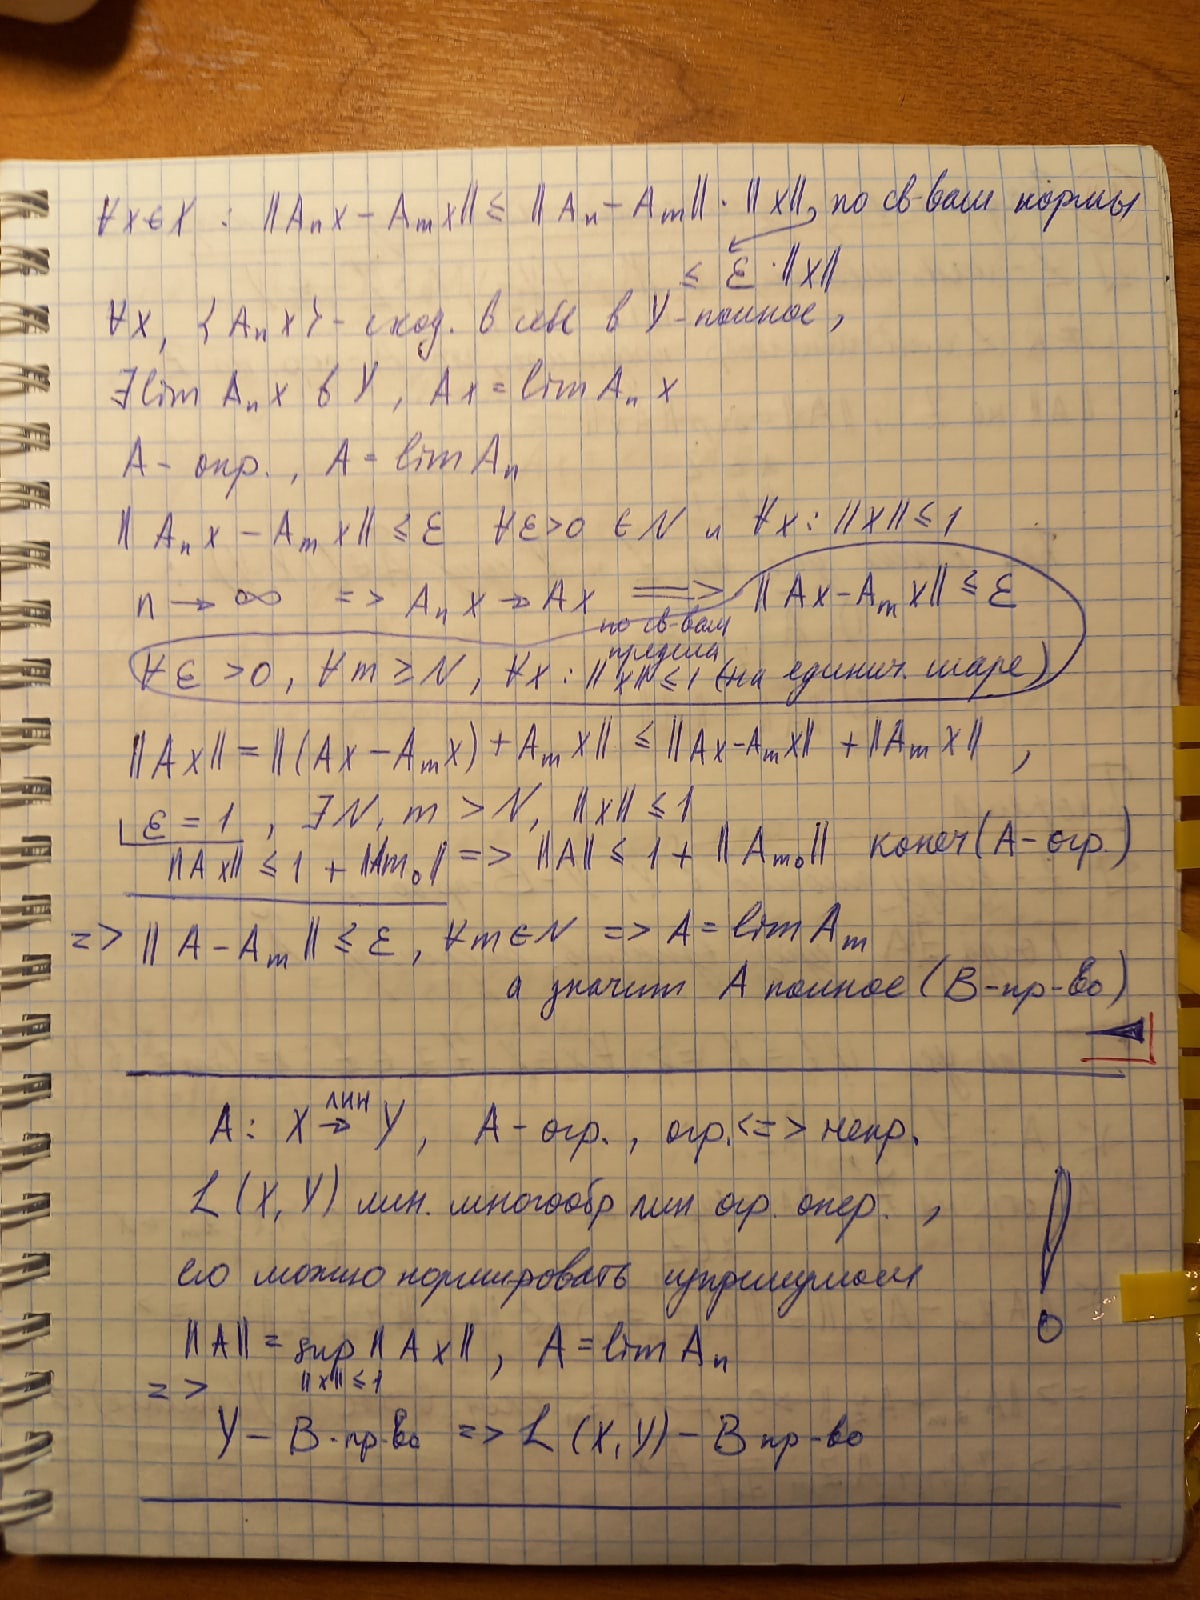 ∀x∈X : ||Aₙx − Aₘx|| ≤ ||Aₙ − Aₘ|| · ||x||, по св-вам нормы
≤ ε · ||x||
∀x, {Aₙx} - сход. в себе в Y - полное,
∃ lim Aₙx в Y, Ax = lim Aₙx
A - опр., A = lim Aₙ
||Aₙx − Aₘx|| ≤ ε ∀ε>0 ∈N и ∀x : ||x|| ≤ 1
n → ∞ => Aₙx → Ax ==> ||Ax − Aₘx|| ≤ ε
по св-вам
предела
∀ε > 0, ∀m ≥ N, ∀x : ||x|| ≤ 1 (на единич. шаре)
||Ax|| = ||(Ax − Aₘx) + Aₘx|| ≤ ||Ax − Aₘx|| + ||Aₘx|| ,
ε = 1 , ∃N, m > N, ||x|| ≤ 1
||Ax|| ≤ 1 + ||Aₘ₀|| => ||A|| ≤ 1 + ||Aₘ₀|| конеч (A - огр.)
=> ||A − Aₘ|| ≤ ε, ∀m∈N => A = lim Aₘ
а значит A полное (B-пр-во)
A : X →(лин) Y, A - огр. , огр. <=> непр.
L (X, Y) лин. многообр лин огр. опер. ,
его можно нормировать супремумом
||A|| = sup ||Ax||, A = lim Aₙ
||x|| ≤ 1
=>
Y - B-пр-во => L (X, Y) - B пр-во